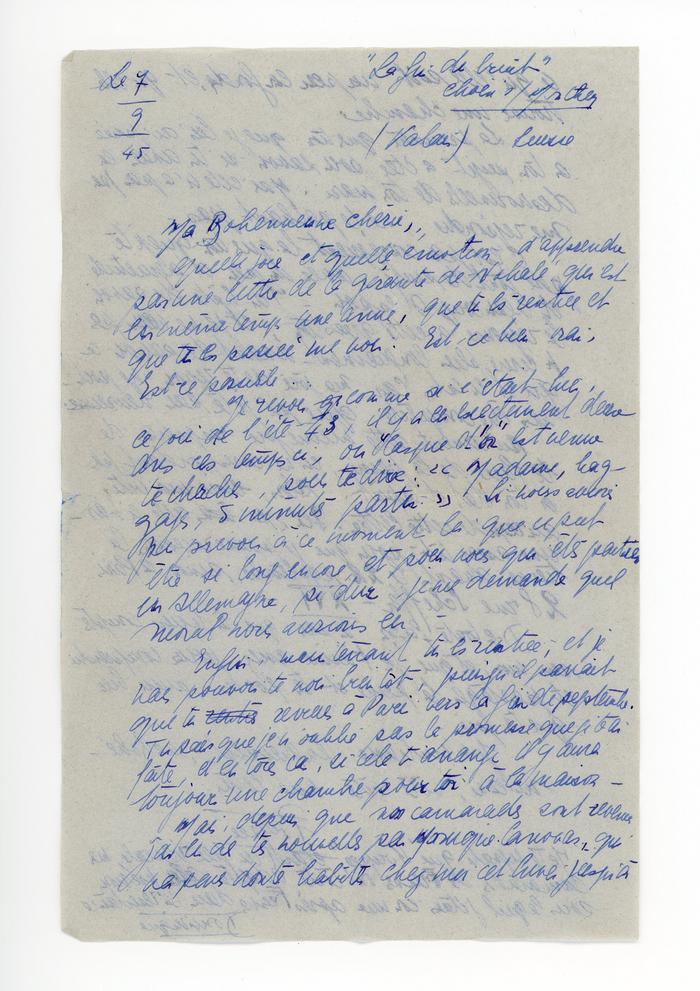 Le 7
9
45
"La Gui de bruit"
Choëx s/ Monthey
(Valais) Suisse
Ma Bohémienne chérie,
quelle joie et quelle émotion d'apprendre
par une lettre de la gérante de qui est
en même temps une amie, que tu es rentrée et
que tu es passée me voir. Est-ce bien vrai,
Est-ce possible..
Je revois comme si c'était hier,
ce jour de l'été 43 il y a eu exactement deux
ans ces temps ci, où "Casque d'or" est venue
te chercher, pour te dire: << Madame, bag-
gages, 5 minutes partir. >> Si nous avions
pu prévoir à ce moment là que ce peut
être si long encore, et pour vous qui êts parties
en Allemagne, si dur, je me demande quel
moral nous aurions eu –
Enfin, maintenant tu es rentrée, et je
vais pouvoir te voir bientôt, puisqu'il parait
que tu revens à Paris vers la fin de septembre.
Tu sais que je n'oublie pas la promesse que je t'ai
faite, et en tous ca, si cela t'arrange il y aura
toujours une chambre pour toi à la maison –
Mais, depuis que nos camarades sont revenues
j'ai eu de tes nouvelles par Monique, qui
va sans doute habiter chez moi cet hiver jusqu'à